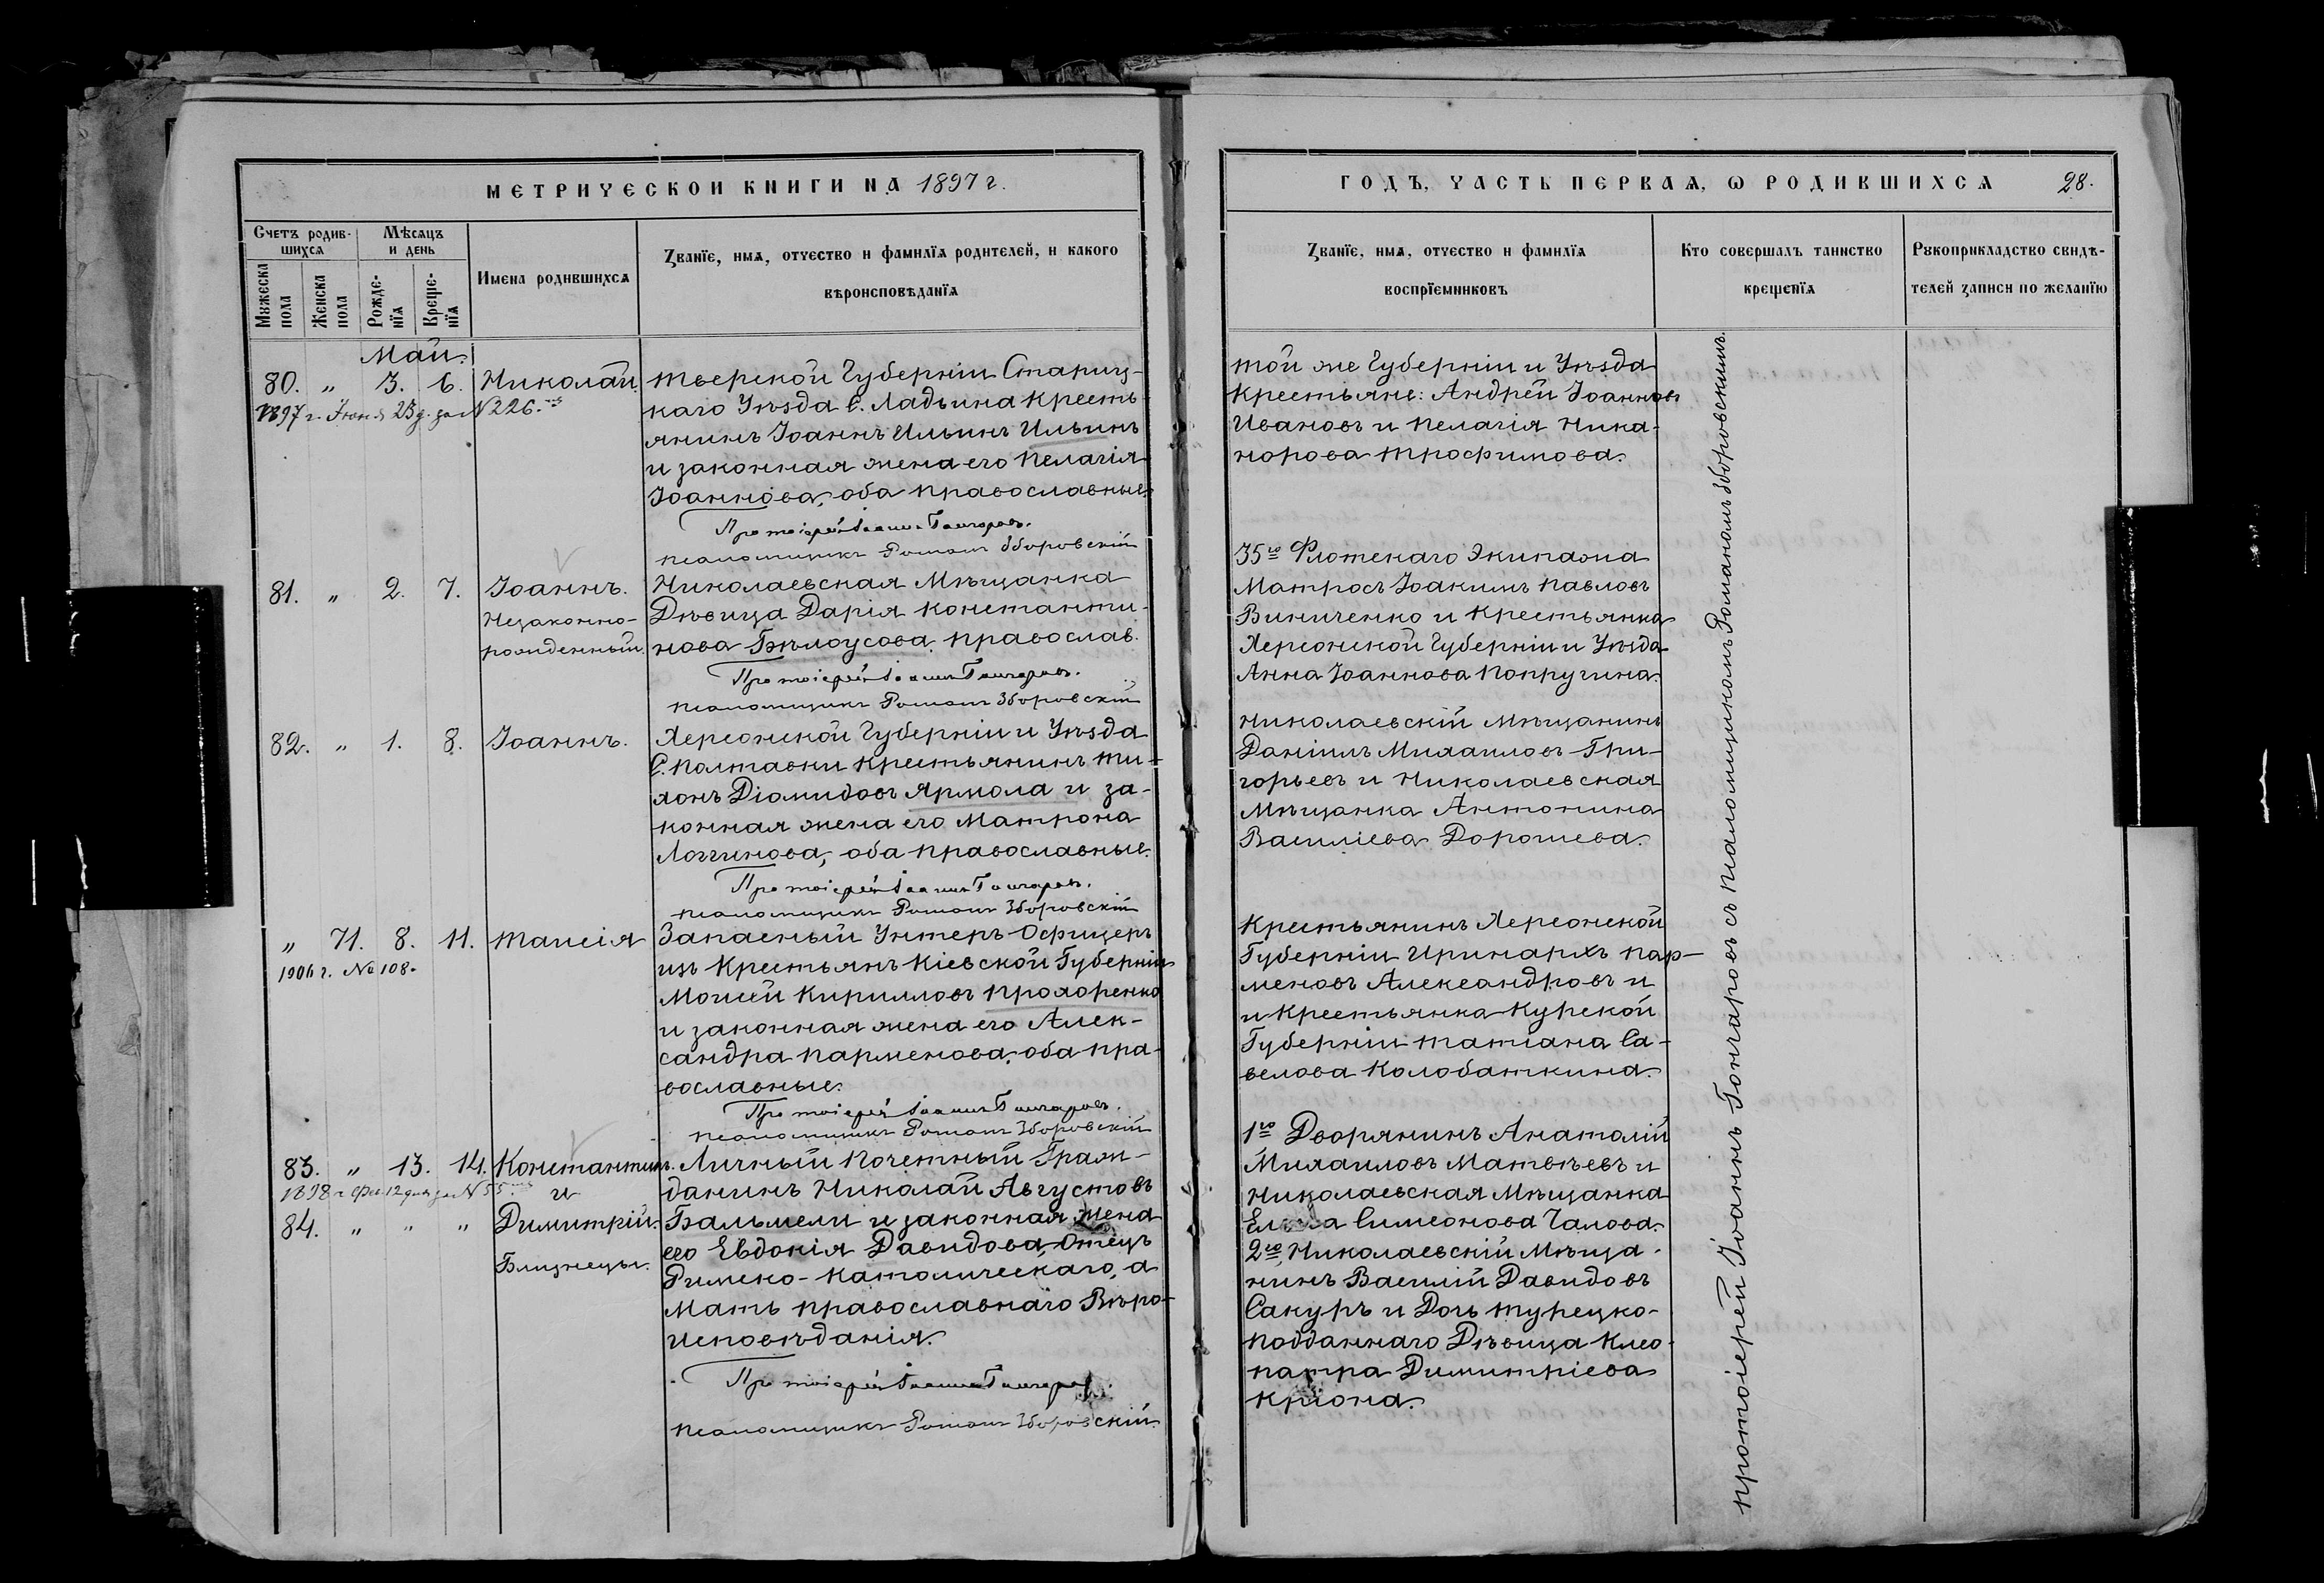 МЕТРИЧЕСКОЙ КНИГИ НА 1897 г.
Счетъ родив-
шихся
Мѣсяцъ
и день
Мꙋжеска
пола
Женска
пола
Рожде-
нїя
Креще-
нїя
Имена родившихся
Званїе, имя, отчество и фамилїя родителей, и какого
вѣроисповѣданїя
Май.
80. „ 3. 6. Николай
1897 г. Іюня 23 д. за №226.
Тверской Губерніи Стариц-
каго Уѣзда С. Ладьина кресть-
янинъ Іоаннъ Ильинъ Ильинъ
и законная жена его Пелагія
Іоаннова, оба православные.
Протоіерей Іоаннъ Гончаровъ.
Псаломщикъ Романъ Зборовскій
81. „ 2. 7. Іоаннъ.
Незаконно-
рожденный.
Николаевская Мѣщанка
Дѣвица Дарія Константи-
нова Бѣлоусова, православ.
Протоіерей Іоаннъ Гончаровъ.
Псаломщикъ Романъ Зборовскій
82. „ 1. 8. Іоаннъ.
Херсонской Губерніи и Уѣзда
С. Полтавки крестьянинъ Ти-
хонъ Діомидовъ Ярмола и за-
конная жена его Матрона
Логгинова, оба православные.
Протоіерей Іоаннъ Гончаровъ.
Псаломщикъ Романъ Зборовскій
„ 71. 8. 11. Таисія
1906 г. № 108.
Запасный Унтеръ-Офицеръ
изъ Крестьянъ Кіевской Губерніи
Моисей Кирилловъ Прохоренко
и законная жена его Алек-
сандра Парменова, оба пра-
вославные.
Протоіерей Іоаннъ Гончаровъ.
Псаломщикъ Романъ Зборовскій
83. „ 13. 14. Константинъ.
1898 г. Фев. 12 дня за № 55
и
84. „ „ „ Димитрій.
Близнецы.
Личный Почетный Граж-
данинъ Николай Августовъ
Бальмели и законная жена
его Евдокія Давидова, Отецъ
Римско-Католическаго, а
Мать православнаго Вѣро-
Исповѣданія.
Протоіерей Іоаннъ Гончаровъ.
Псаломщикъ Романъ Зборовскій.
ГОДЪ, ЧАСТЬ ПЕРВАЯ, Ѡ РОДИВШИХСЯ 28.
Званїе, имя, отчество и фамилїя
воспрїемниковъ
Кто совершалъ таинство
крещенїя
Рꙋкоприкладство свидѣ-
телей записи по желанїю
той же Губерніи и Уѣзда
Крестьяне: Андрей Іоанновъ
Ивановъ и Пелагія Ника-
норова Трофимова.
35го Флотскаго Экипажа
Матросъ Іоакимъ Павловъ
Виниченко и Крестьянка
Херсонской Губерніи и Уѣзда
Анна Іоаннова Попругина.
Николаевскій Мѣщанинъ
Даніилъ Михаиловъ Гри-
горьевъ и Николаевская
Мѣщанка Антонина
Василіева Дорошева.
Крестьянинъ Херсонской
Губерніи Иринархъ Пар-
меновъ Александровъ и
и Крестьянка Курской
Губерніи Татіана Са-
велова Колобаткина.
1го Дворянинъ Анатолій
Михаиловъ Матвѣевъ и
Николаевская Мѣщанка
Симеонова Чалова.
2го, Николаевскій Мѣща-
нинъ Василій Давидовъ
Сакуръ и Дочь турецко-
подданнаго Дѣвица Клео-
патра Димитріева
Кріона.
Протоіерей Іоаннъ Гончаровъ съ Псаломщикомъ Романомъ Зборовскимъ.